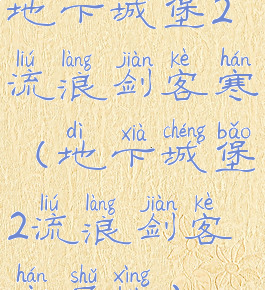 地下城堡2
liú làng jiàn kè hán
流浪剑客寒
dì xià chéng bǎo
(地下城堡
liú làng jiàn kè
2流浪剑客
hán shǔ xìng